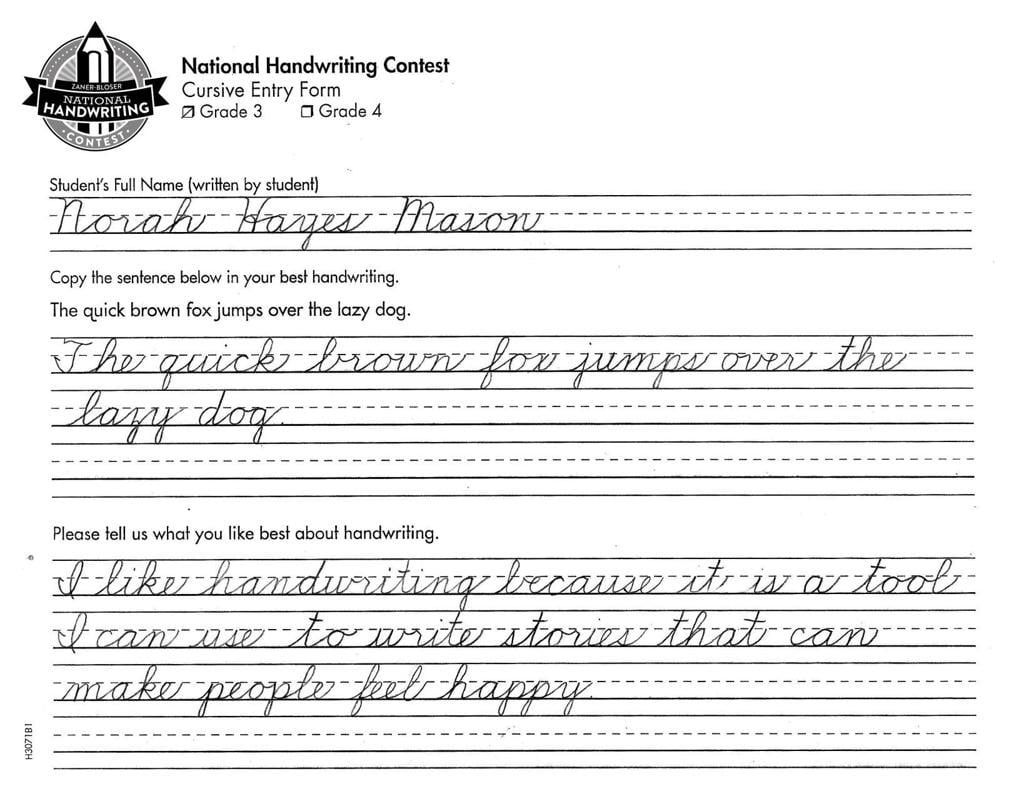 ZANER-BLOSER
NATIONAL
HANDWRITING
CONTEST
National Handwriting Contest
Cursive Entry Form
☑ Grade 3 ☐ Grade 4
Student's Full Name (written by student)
Norah Hayes Mason
Copy the sentence below in your best handwriting.
The quick brown fox jumps over the lazy dog.
The quick brown fox jumps over the
lazy dog.
Please tell us what you like best about handwriting.
I like handwriting because it is a tool
I can use to write stories that can
make people feel happy.
H307181